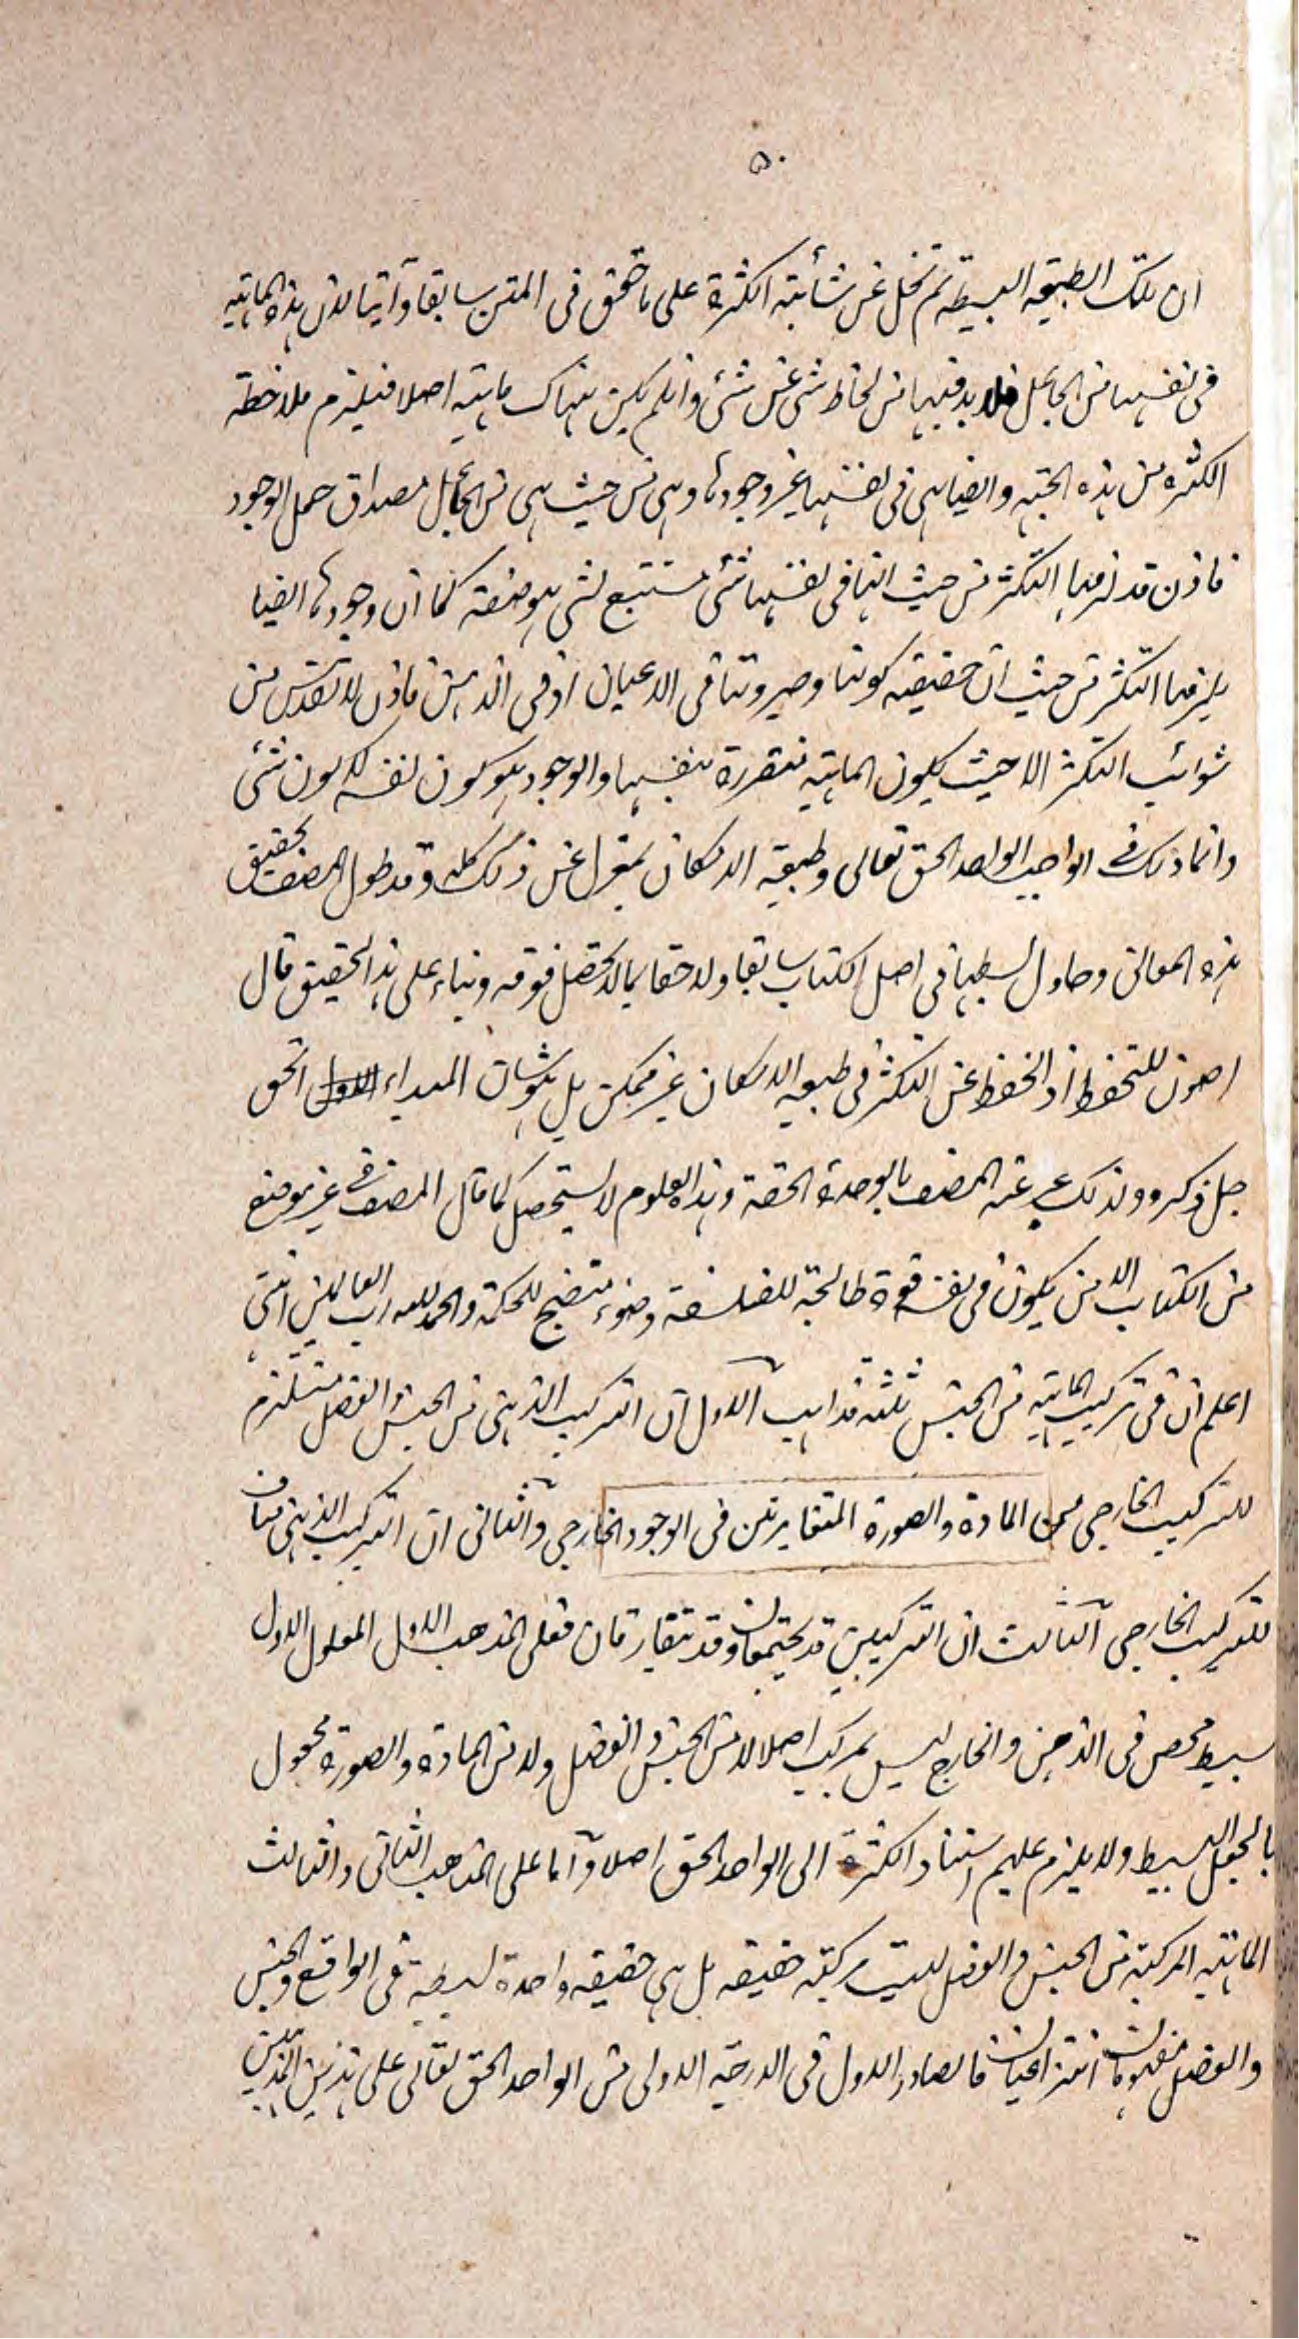 ٥٠
ان تلك الطبيعة البسيطة لم تخل عن شائبة الكثرة على ما تحقق فى المتن سابقا وآتيا لان هذه الماهية
فى نفسها من الجاعل فلا بد فيها من لحاظ شى عن شئ وان لم يكن هناك ماهية اصلا فيلزم ملاحظة
الكثرة من هذه الجهة وايضا هى فى نفسها غير وجودها وهى من حيث هى من الجاعل مصداق حمل الوجود
فاذن قد لزمها التكثر من حيث انها فى نفسها شئ مستتبع لشى هو صفة كما ان وجودها ايضا
يلزمها التكثر من حيث ان حقيقته كونها وصيرورتها فى الاعيان او فى الذهن فاذن لا تقدس من
شوائب التكثر الا حيث يكون الماهية متقررة بنفسها والوجود هو كون نفسه لا كون شئ
وانما ذلك فى الواجب الواحد الحق تعالى وطبيعة الامكان بمعزل عن ذلك كله وقد طول المصنف تحقيق
هذه المعانى وحاول بسطها فى اصل الكتاب سابقا ولاحقا بما لا تحصل فوقه وبناء على هذا التحقيق قال
اصون للتحفظ اذ الحفظ عن التكثر فى طبيعة الامكان غير ممكن بل هو شان المبداء الاول الحق
جل ذكره ولذلك عبر عنه المصنف بالوحدة الحقة وهذا العلوم لا يستحصل كما قال المصنف فى غير موضع
من الكتاب الا من يكون فى نفسه قوة طالحة للفلسفة وضوء متضح للحكمة والحمد لله رب العالمين انتهى
اعلم ان فى تركيب الماهية من الجنس ثلثة مذاهب الاول ان التركيب الذهنى من الجنس والفصل مستلزم
للتركيب الخارجى من المادة والصورة المتغايرتين فى الوجود الخارجى والثانى ان التركيب الذهنى مناف
للتركيب الخارجى الثالث ان التركيبين قد يجتمعان وقد يتفارقان فعلى المذهب الاول المعلول الاول
بسيط محض فى الذهن والخارج ليس بمركب اصلا لا من الجنس والفصل ولا من المادة والصورة مجعول
بالجعل البسيط ولا يلزم عليهم استناد الكثرة الى الواحد الحق اصلا واما على المذهب الثانى والثالث
الماهية المركبة من الجنس والفصل ليست مركبة حقيقة بل هى حقيقة واحدة بسيطة فى الواقع والجنس
والفصل مفهومان انتزاعيان فالصادر الاول فى الدرجة الاولى من الواحد الحق تعالى على هذين المذهبين